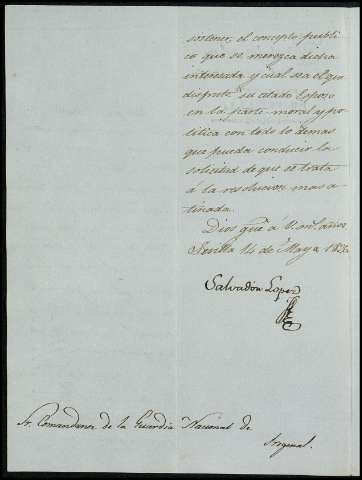 sostener, el concepto publi
co que se merezca dicha
interesada y cual sea el que
disfrute su citado Esposo
en la parte moral y po
litica con todo lo demas
que pueda conducir la
solicitud de que se trata
á la resolucion mas a
tinada.
Dios gue á V. ms. años.
Sevilla 14 de Mayo
Salvador Lopez
Sr. Comandante de la Guardia Nacional de